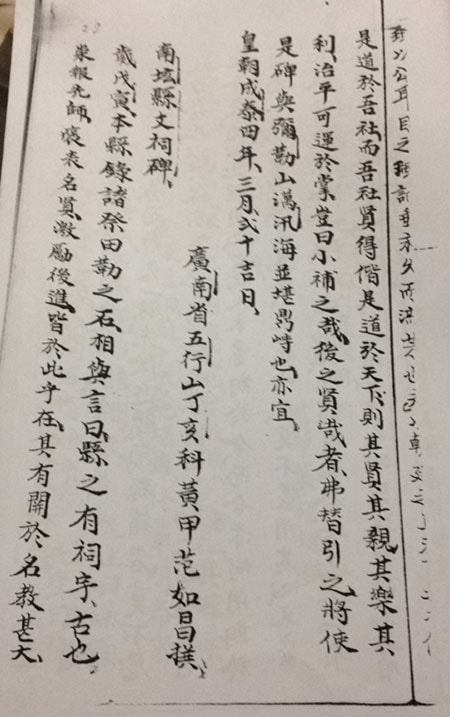 以公耳目之
是道於吾社、而吾社賢得偕是道於天下、則其賢其親其樂其
利、治平可運於掌、豈曰小補之哉、後之賢哉者、弗替引之、將使
是碑與彌勒山汛海並堪峙也、亦宜、
皇朝成泰四年、三月、弍十吉日、
廣南省五行山丁亥科黃甲范如昌撰、
南坛縣文祠碑、
歲戊寅、本縣錄諸祭田勒之石、相與言曰、縣之有祠宇、古也、
崇報先師、褒表名賢、激勵後進、皆於此乎在、其有關於名教甚大、